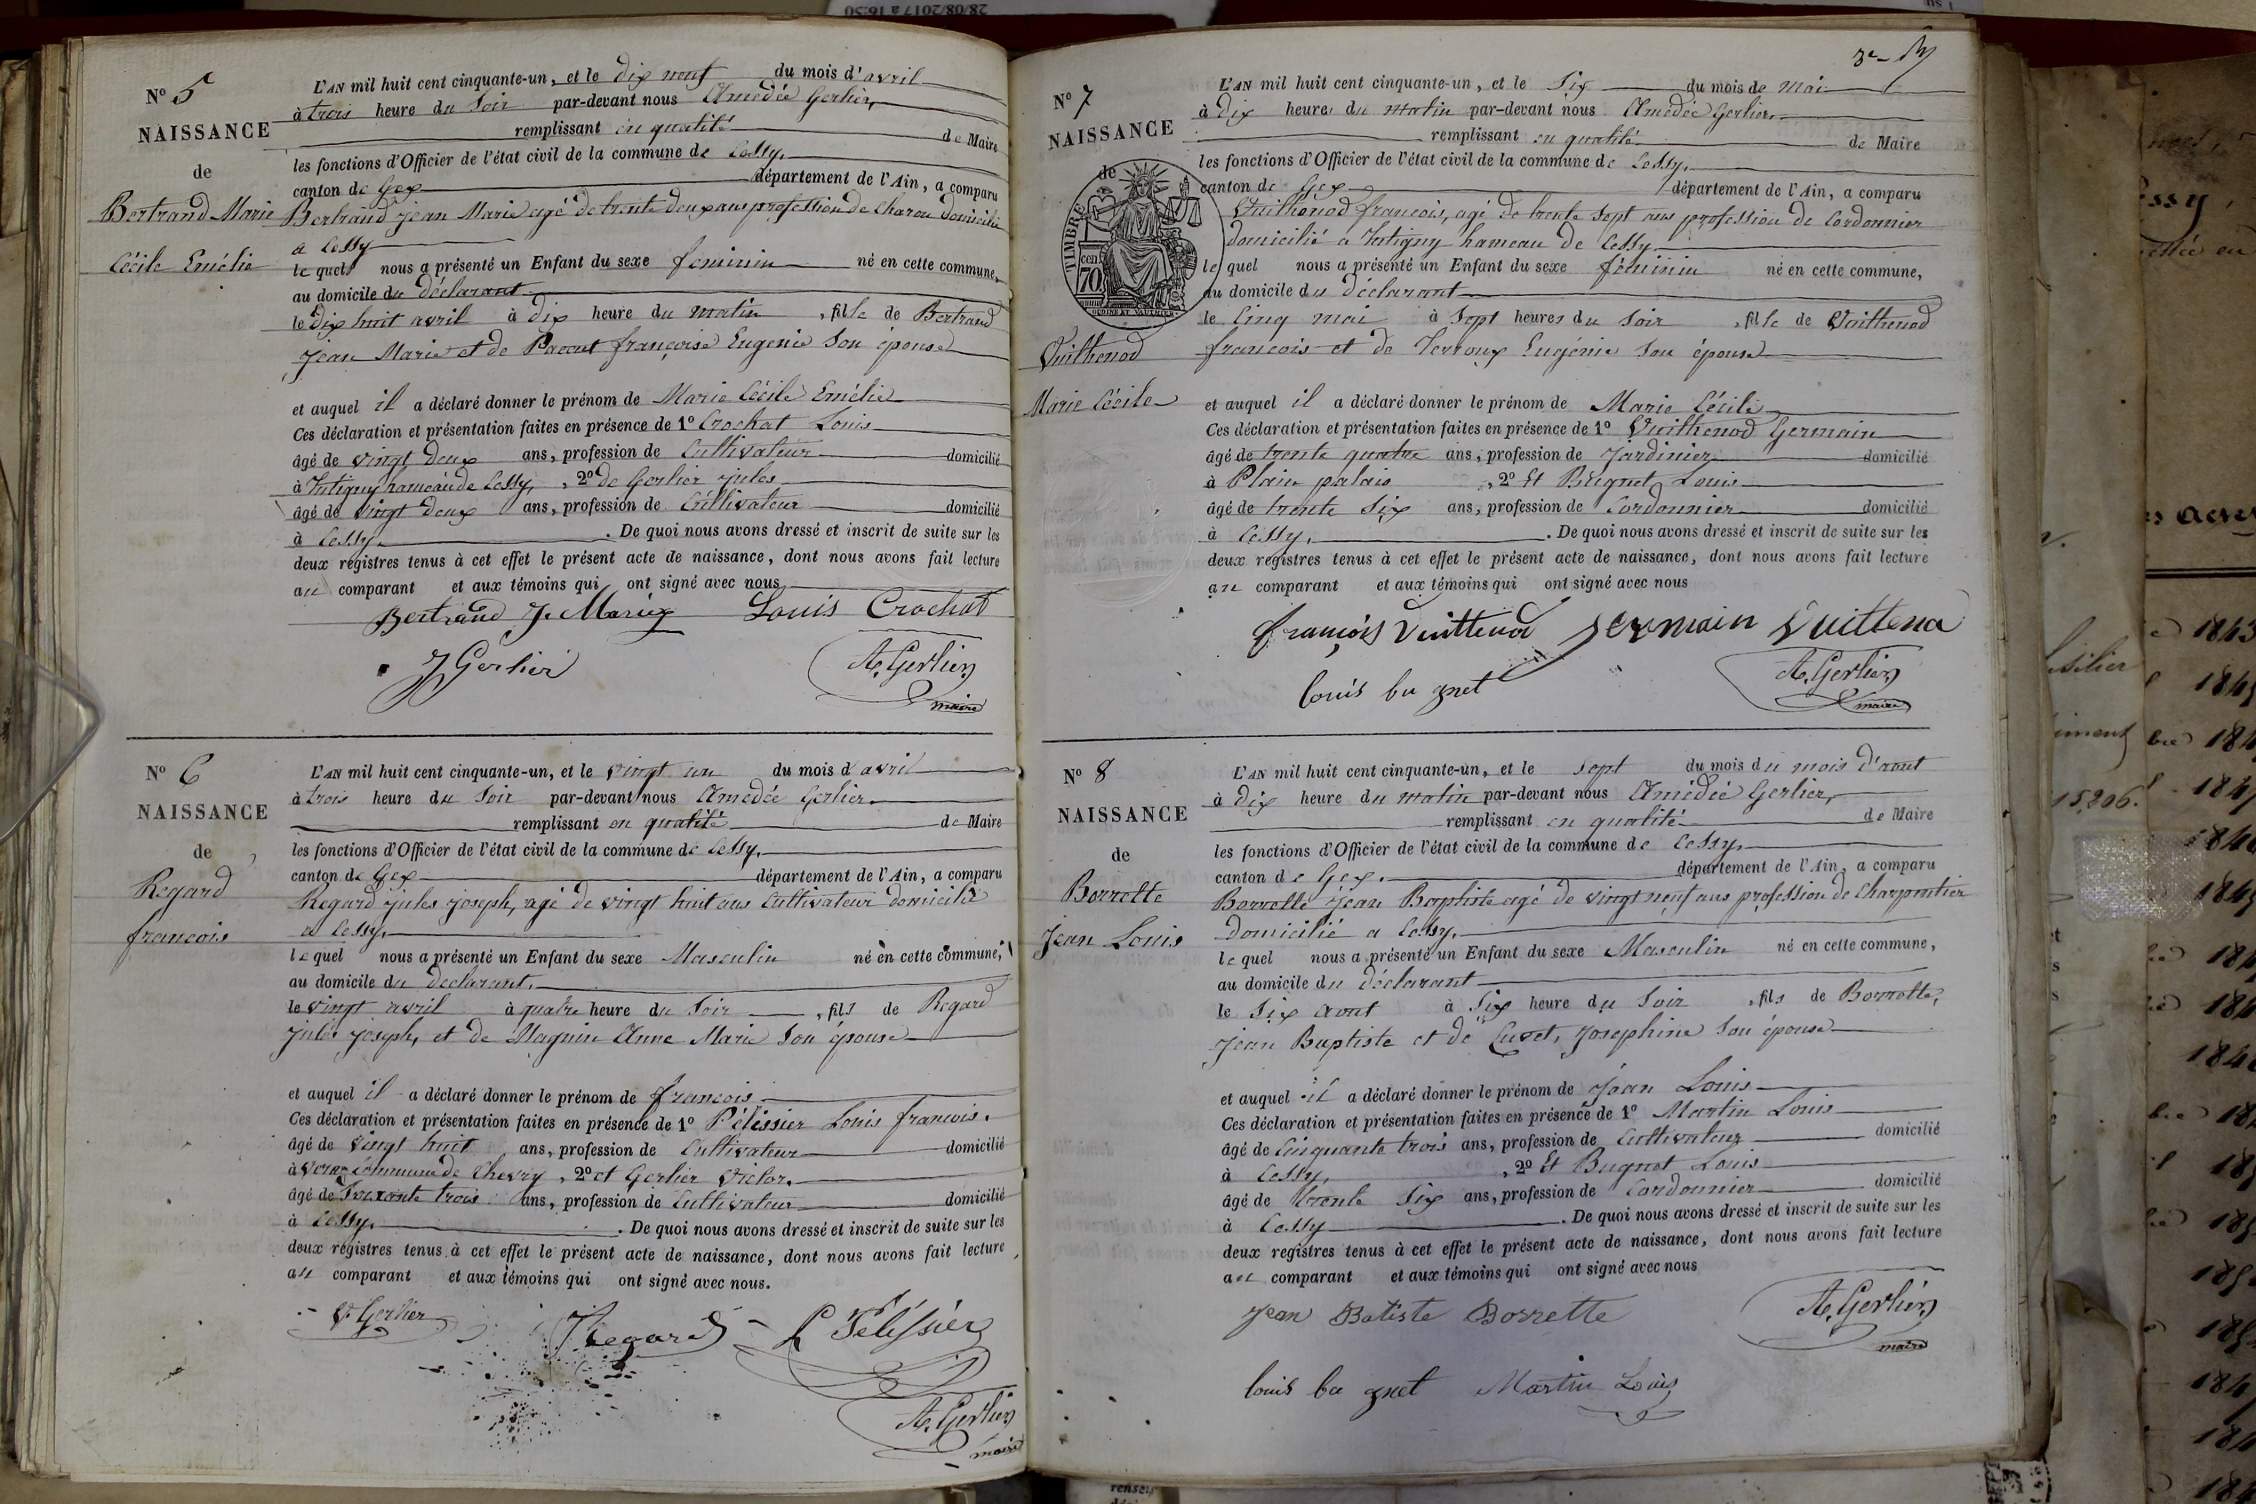 28/08/2017 à 16:50
N° 5
NAISSANCE
de
Bertrand Marie
Cécile Emélie
L'AN mil huit cent cinquante-un, et le dix neuf du mois d'avril
à trois heure du Soir par-devant nous Amédée Gerlier,
remplissant en qualité de Maire
les fonctions d'Officier de l'état civil de la commune de Cessy,
canton de Gex département de l'Ain, a comparu
Bertrand jean Marie agé de trente deux ans profession de Charon domicilié
a Cessy
le quel nous a présenté un Enfant du sexe feminin né en cette commune,
au domicile du déclarant
le dix huit avril à dix heure du matin, fille de Bertrand
Jean Marie et de Paccut françoise Eugenie Son épouse
et auquel il a déclaré donner le prénom de Marie Cécile Emélie
Ces déclaration et présentation faites en présence de 1° Crochat Louis
âgé de vingt deux ans, profession de Cultivateur domicilié
à Tutigny hameau de Cessy, 2° de Gerlier jules
âgé de vingt deux ans, profession de Cultivateur domicilié
à Cessy. De quoi nous avons dressé et inscrit de suite sur les
deux registres tenus à cet effet le présent acte de naissance, dont nous avons fait lecture
au comparant et aux témoins qui ont signé avec nous
Bertrand J. Marie Louis Crochat
J Gerlier A. Gerlier
maire
N° 6
NAISSANCE
de
Regard
francois
L'AN mil huit cent cinquante-un, et le vingt un du mois d'avril
à trois heure du Soir par-devant nous Amédée Gerlier.
remplissant en qualité de Maire
les fonctions d'Officier de l'état civil de la commune de Cessy,
canton de Gex département de l'Ain, a comparu
Regard jules joseph, agé de vingt huit ans Cultivateur domicilié
a Cessy,
le quel nous a présenté un Enfant du sexe Masculin né en cette commune,
au domicile du declarant,
le vingt avril à quatre heure du Soir, fils de Regard
jules joseph, et de Magnin Anne Marie Son épouse
et auquel il a déclaré donner le prénom de francois
Ces déclaration et présentation faites en présence de 1° Pélissier Louis francois.
âgé de vingt huit ans, profession de Cultivateur domicilié
à commune de Chevry, 2° et Gerlier Victor.
âgé de Soixante trois ans, profession de Cultivateur domicilié
à Cessy. De quoi nous avons dressé et inscrit de suite sur les
deux registres tenus à cet effet le présent acte de naissance, dont nous avons fait lecture
au comparant et aux témoins qui ont signé avec nous.
V. Gerlier Regard L Pélissier
A. Gerlier
maire
N° 7
NAISSANCE
de
TIMBRE
cen.
70
Vuithenod
Marie Cécile
L'AN mil huit cent cinquante-un, et le Six du mois de mai
à dix heures du matin par-devant nous Amédée Gerlier
remplissant en qualité de Maire
les fonctions d'Officier de l'état civil de la commune de Cessy,
canton de Gex département de l'Ain, a comparu
Vuithenod francois, agé de trente Sept ans profession de Cordonnier
domicilié a Tutigny hameau de Cessy
le quel nous a présenté un Enfant du sexe féminin né en cette commune,
au domicile du déclarant
le Cinq mai à Sept heures du Soir, fille de Vuithenod
francois et de Verroux Eugénie Son épouse
et auquel il a déclaré donner le prénom de Marie Cécile
Ces déclaration et présentation faites en présence de 1° Vuithenod Germain
âgé de trente quatre ans, profession de Jardinier domicilié
à Plain palais, 2° Et Bugnet Louis
âgé de trente Six ans, profession de Cordonnier domicilié
à Cessy. De quoi nous avons dressé et inscrit de suite sur les
deux registres tenus à cet effet le présent acte de naissance, dont nous avons fait lecture
au comparant et aux témoins qui ont signé avec nous
françois Vuittenod Germain Vuittenod
louis bu gnet A. Gerlier
maire
N° 8
NAISSANCE
de
Borrette
Jean Louis
L'AN mil huit cent cinquante-un, et le Sept du mois du mois d'aout
à dix heure du matin par-devant nous Amédée Gerlier,
remplissant en qualité de Maire
les fonctions d'Officier de l'état civil de la commune de Cessy,
canton de Gex. département de l'Ain, a comparu
Borrette Jean Baptiste agé de vingt neuf ans profession de Charpentier
domicilié a Cessy.
le quel nous a présenté un Enfant du sexe Masculin né en cette commune,
au domicile du déclarant
le Six aout à Six heure du Soir, fils de Borrette,
Jean Baptiste et de Cuzet, Josephine Son épouse
et auquel il a déclaré donner le prénom de Jean Louis
Ces déclaration et présentation faites en présence de 1° Martin Louis
âgé de Cinquante trois ans, profession de Cultivateur domicilié
à Cessy, 2° Et Bugnet Louis
âgé de trente Six ans, profession de Cordonnier domicilié
à Cessy. De quoi nous avons dressé et inscrit de suite sur les
deux registres tenus à cet effet le présent acte de naissance, dont nous avons fait lecture
au comparant et aux témoins qui ont signé avec nous
Jean Batiste Borrette A. Gerlier
maire
louis bu gnet Martin Louis